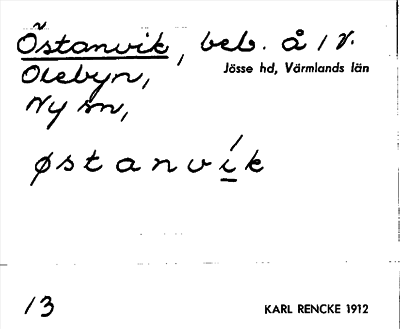 Östanvik, beb. å 1 V.
Olebyn,
Jösse hd, Värmlands län
Ny sn,
østanvík
13
KARL RENCKE 1912